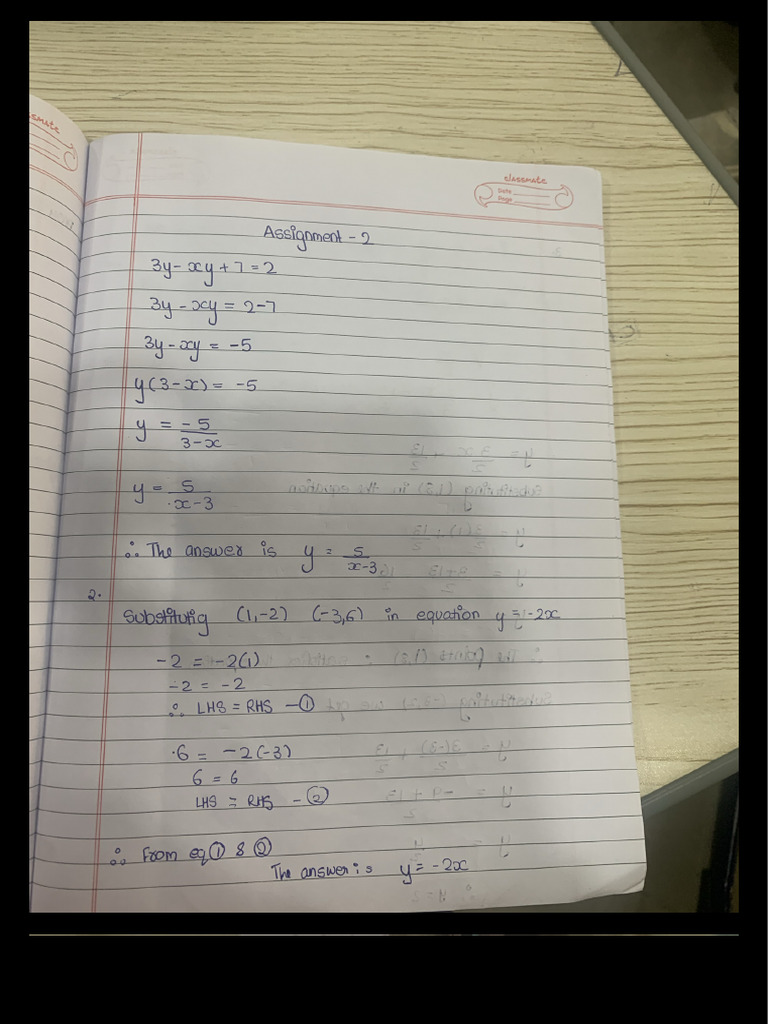 classmate
Date
Page
Assignment - 2
3y - xy + 7 = 2
3y - xy = 2-7
3y - xy = -5
y(3-x) = -5
y = -5/3-x
y = 5/x-3
∴ The answer is y = 5/x-3
2.
Substitutig (1,-2) (-3,6) in equation y = -2x
-2 = -2(1)
-2 = -2
∴ LHS = RHS - ①
6 = -2(-3)
6 = 6
LHS = RHS - ②
∴ From eq ① & ②
The answer is y = -2x